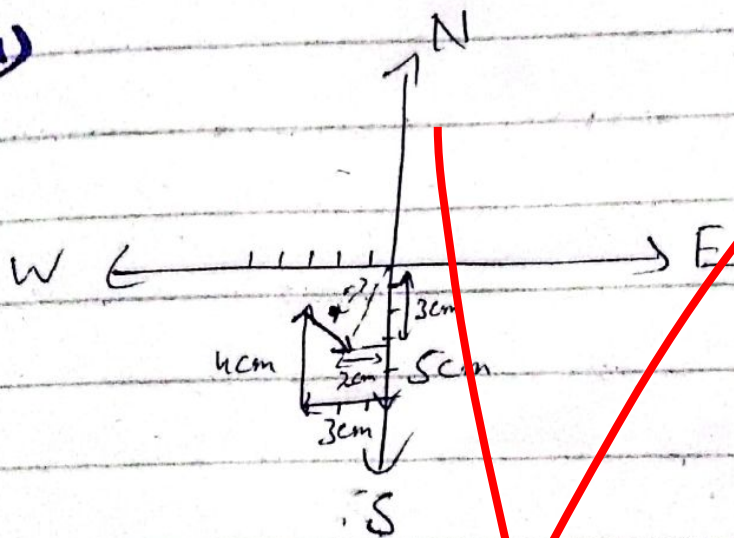 1)
N
W E
3cm
x=?
4cm 2cm 5cm
3cm
S